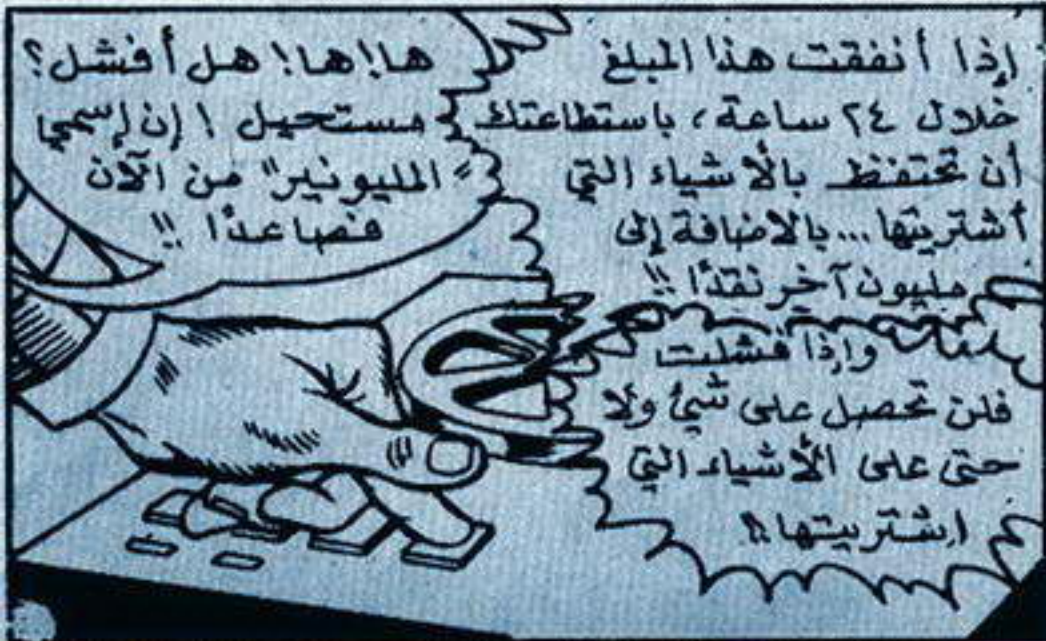 إذا أنفقت هذا المبلغ
خلال ٢٤ ساعة، باستطاعتك
أن تحتفظ بالأشياء التي
أشتريتها... بالاضافة إلى
مليون آخر نقدًا !!
وإذا فشلت
فلن تحصل على شيئ ولا
حتى على الأشياء التي
اشتريتها !!
ها! ها! هل أفشل؟
مستحيل ! إن إسمي
"المليونير" من الآن
فصاعدًا !!